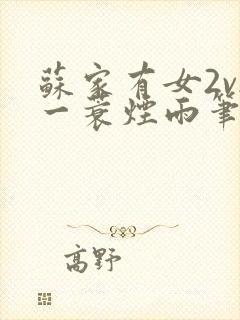 蘇家有女2v
一蓑煙雨筆
高野